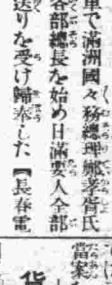 車で滿洲國々務總理鄭孝胥氏
各部總長を始め日滿要人全部
送りを受け歸奉した【長春電
當案
貨